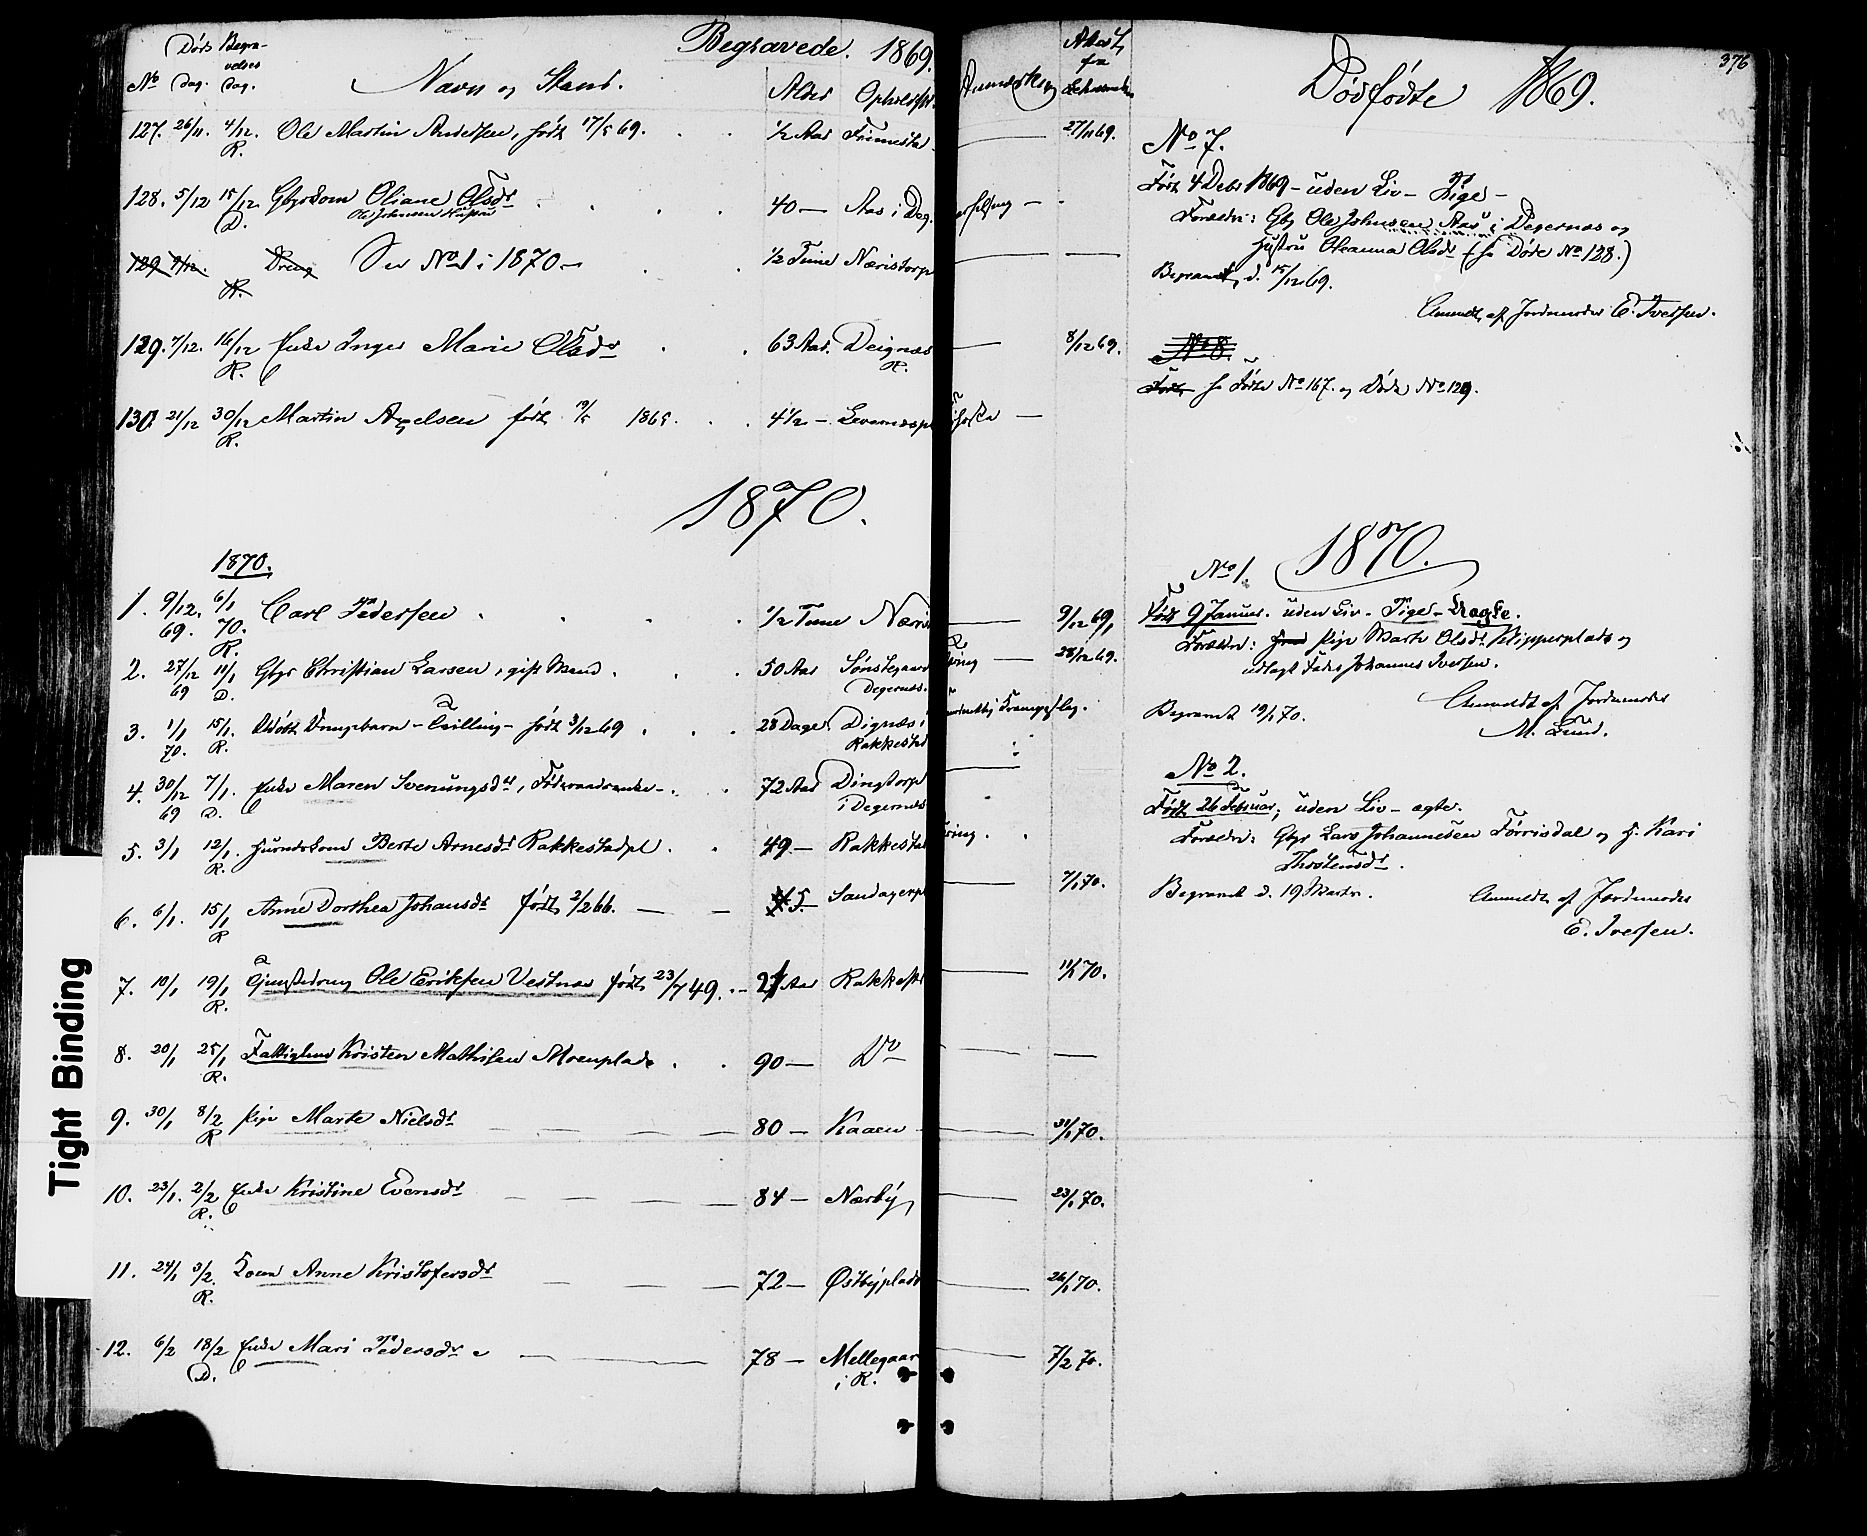 Begravede. 1869.
No Døds dag. Begravelses dag. Navn og Stand. Alder Opholdst.
127. 26/11. 4/12. R. Ole Martin Andersen, født 17/5 69. 1/2 Aar Frimestad 27/11 69.
128. 5/12 15/12 D. Gbrkone Oliane Olsdr 40 — Aas i Deg.
Ole Johnsen Hustru
129 Dreng See No 1 i 1870 — 1/2 Time Næristorp
129. 7/12. 16/12 R. Enke Inger Marie Olsdr 63 Aar. Deignæs R. 8/12 69.
130 21/12 30/12 R. Martin Axelsen født 19/5 1865. 4 1/2 —
1870.
1870.
1. 9/12. 69. 6/1 70. R. Carl Pedersen 1/2 Time Næris 9/12 69
2. 27/12 69 11/1 D. Gbr Christian Larsen, gift Mand. 50 Aar Sønstegaard Degernæs. 28/12 69.
3. 1/1 70. 15/1. R. Udøbt Drengebarn — Tvilling — født 3/12 69 28 Dage Dignæs i Rakkestad
4. 30/12 69 7/1. D. Enke Maren Svenungsdr, Føderaadsenke — 72 Aar Dingstorp i Degernæs
5. 3/1 12/1. R. Huusmdskone Berte Arnesdr Rakkestadpl. 49. — Rakkestad
6. 6/1. 15/1 R Anne Dorthea Johansdr født 2/2 66. — — Sandagerpl 7/1 70.
7. 10/1 19/1 R. Tjenestedreng Ole Eriksen Vestnæs født 23/7 49. — 21 Aar Rakkest 11/1 70.
8. 20/1 25/1 R. Fattiglem Kristen Mathisen Moenplads 90 — Do —
9. 30/1 8/2 R Pige Marte Nielsdr 80 — Kaaen 31/1 70.
10. 23/1. 2/2 R. Enke Kristine Evensdr 84 — Nærby 23/1 70.
11. 24/1 3/2. R. Kone Anne Kristofersdr 72 — Østbyplads 26/1 70.
12. 6/2 18/2 D. Enke Mari Pedersdr 78 — Mellegaar i R. 7/2 70.
376
Dødfødte 1869.
No 7.
Født 4 Decbr 1869 — uden Liv — Pige —
Forældre: Gbr Ole Johnsen Aas i Degernæs og
Hustru Oleanna Olsdr (se Døde No 128.)
Begravet d. 15/12 69.
Anmeldt af Jordmoder E. Iversen.
No 8.
Født se Fødte No 167. og Døde No 129.
1870.
No 1.
Født 9 Januar. uden Liv. Pige — Uægte.
Forældre: Pige Marte Olsdr Klipperplads og
udlagt Fader Johannes Iversen.
Begravet 19/1 70.
Anmeldt af Jordmoder
M. Lund.
No 2.
Født 26 Februar, uden Liv — ægte.
Forældre: Gbr Lars Johannesen Førrisdal og H. Kari
Thostensdr.
Begravet d. 19 Marts.
Anmeldt af Jordmoder
E. Iversen.
Tight Binding